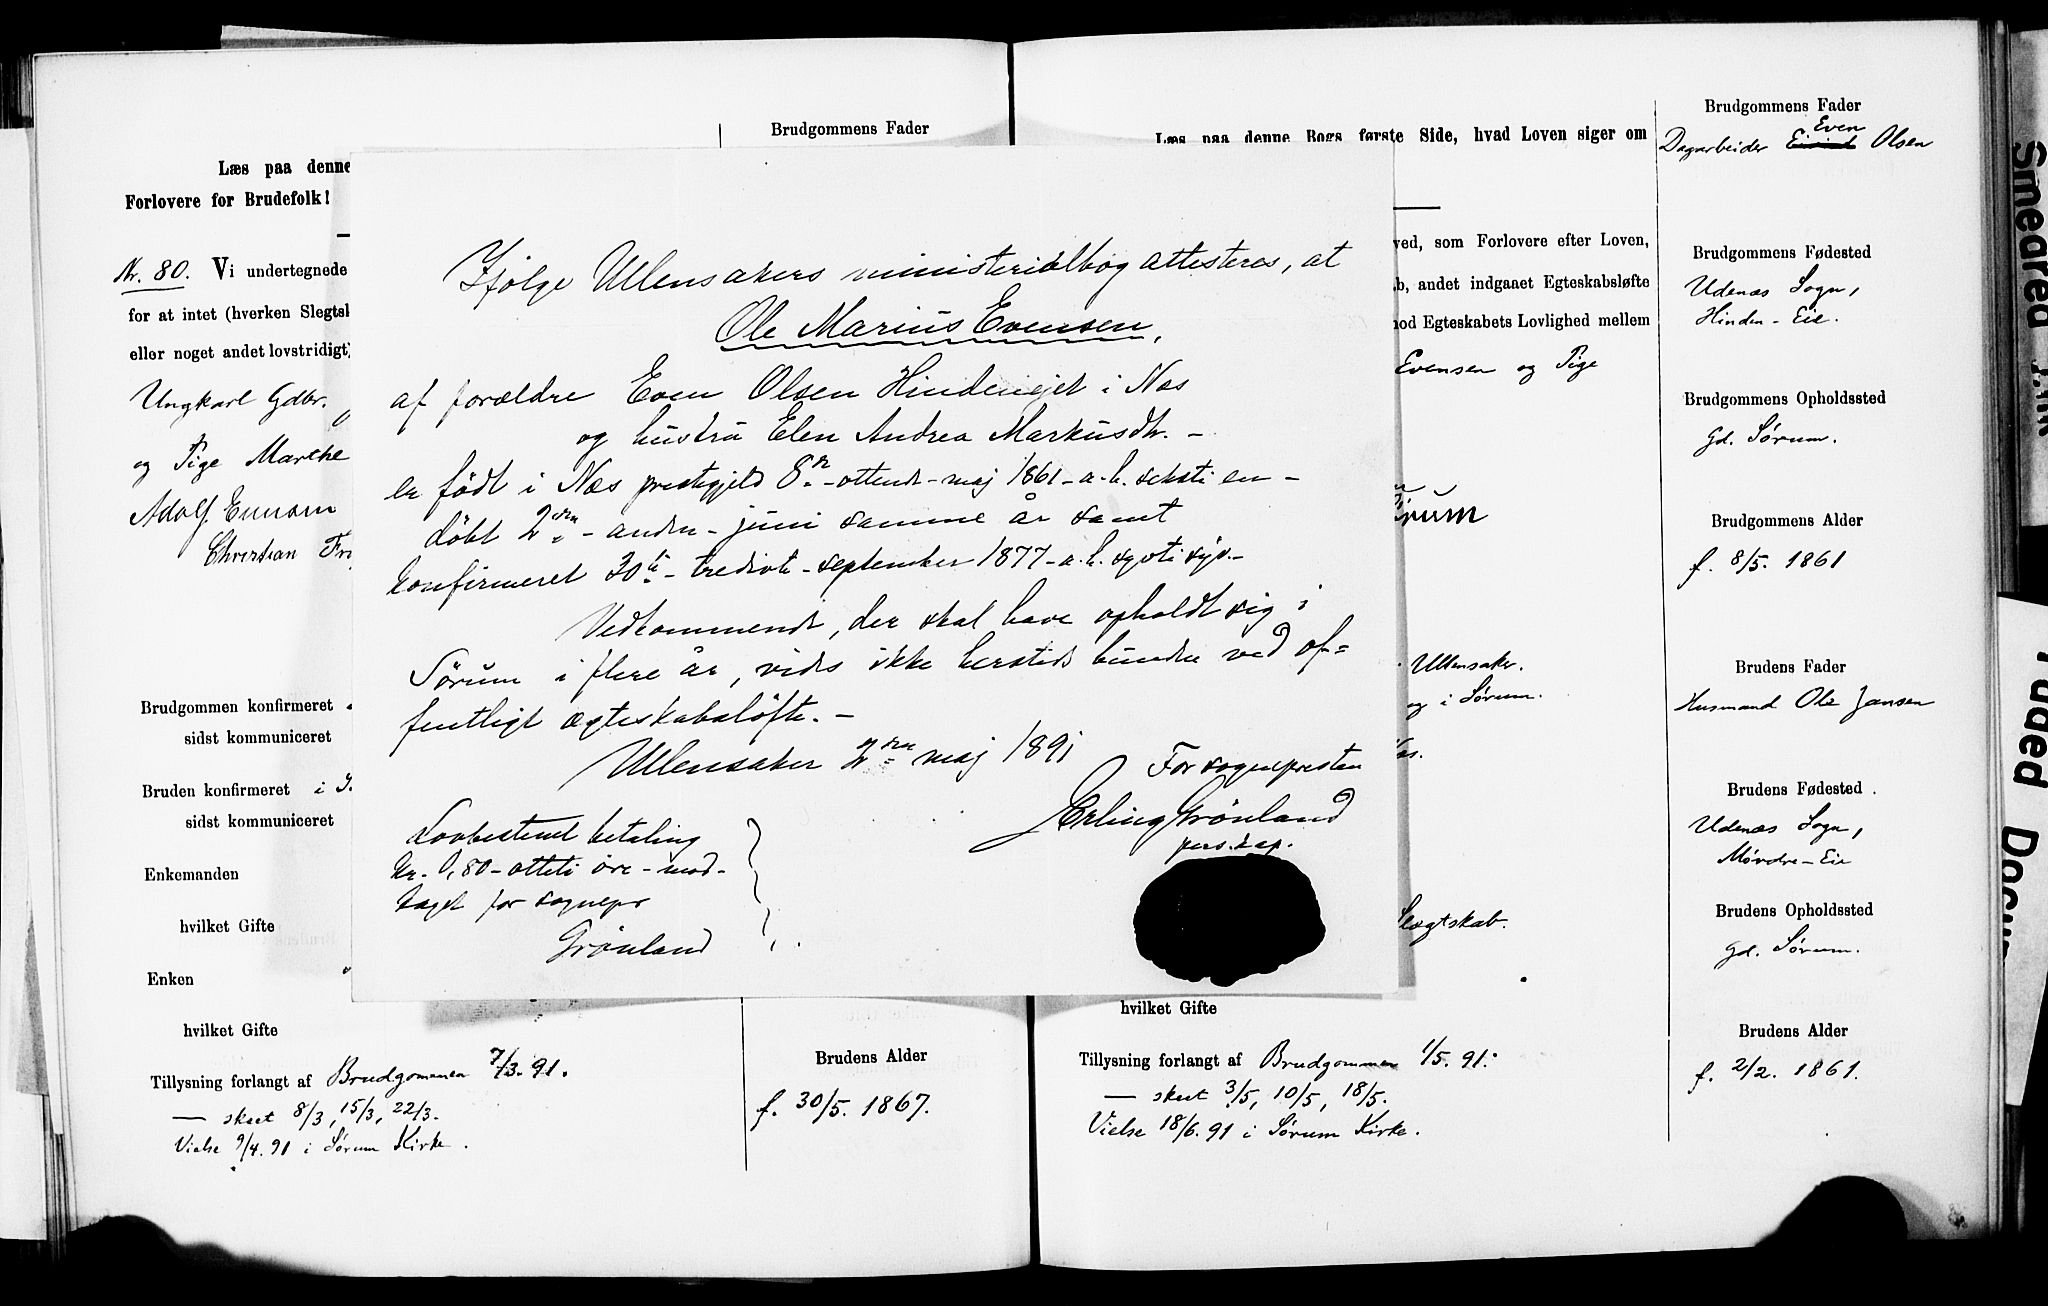 Læs paa denne
Forlovere for Brudefolk!
Nr. 80. Vi undertegnede
for at intet (hverken Slegtsk
eller noget andet lovstridigt)
Ungkarl Gdbr.
og Pige Marthe
Adolf
Christian
Brudgommen konfirmeret
sidst kommuniceret
Bruden konfirmeret i
sidst kommuniceret
Enkemanden
hvilket Gifte
Enken
hvilket Gifte
Tillysning forlangt af Brudgommen 7/3. 91.
— skeet 8/3, 15/3, 22/3.
Vielse 9/4. 91 i Sørum Kirke.
Brudgommens Fader
Brudens Alder
f. 30/5. 1867.
Ifølge Ullensakers ministerialbog attesteres, at
Ole Marius Evensen,
af forældre Even Olsen Hindeneiet i Næs
og hustru Elen Andrea Markusdtr. –
er født i Næs prestegjeld 8de – ottende – maj 1861 – a. h. seksti en –
døbt 2den – anden – juni samme år samt
konfirmeret 30te – tredivte – september 1877 – a. h. sytti syv. –
Vedkommende, der skal have opholdt sig i
Sørum i flere år, vides ikke hersteds bunden ved of=
fentligt ægteskabsløfte. –
Ullensaker 2den maj 1891
For sognepresten
Erling Grönland
pers. kap.
Lovbestemt betaling
kr. 0,80 – otteti øre – mod-
taget for sognepr
Grönland
Læs paa denne Bogs første Side, hvad Loven siger om
ved, som Forlovere efter Loven,
b, andet indgaaet Egteskabsløfte
mod Egteskabets Lovlighed mellem
Evensen og Pige
rum
Ullensaker.
og i Sørum.
Slægtskab.
hvilket Gifte
Tillysning forlangt af Brudgommen 1/5. 91.
— skeet 3/5, 10/5, 18/5.
Vielse 18/6. 91 i Sørum Kirke.
Brudgommens Fader
Even
Dagarbeider Eivind Olsen
Brudgommens Fødested
Udenæs Sogn,
Hinden-Eie.
Brudgommens Opholdssted
Gd. Sørum.
Brudgommens Alder
f. 8/5. 1861
Brudens Fader
Husmand Ole Jansen
Brudens Fødested.
Udenæs Sogn,
Møvdre-Eie
Brudens Opholdssted
Gd. Sørum.
Brudens Alder
f. 2/2. 1861.
Smedred
Docum